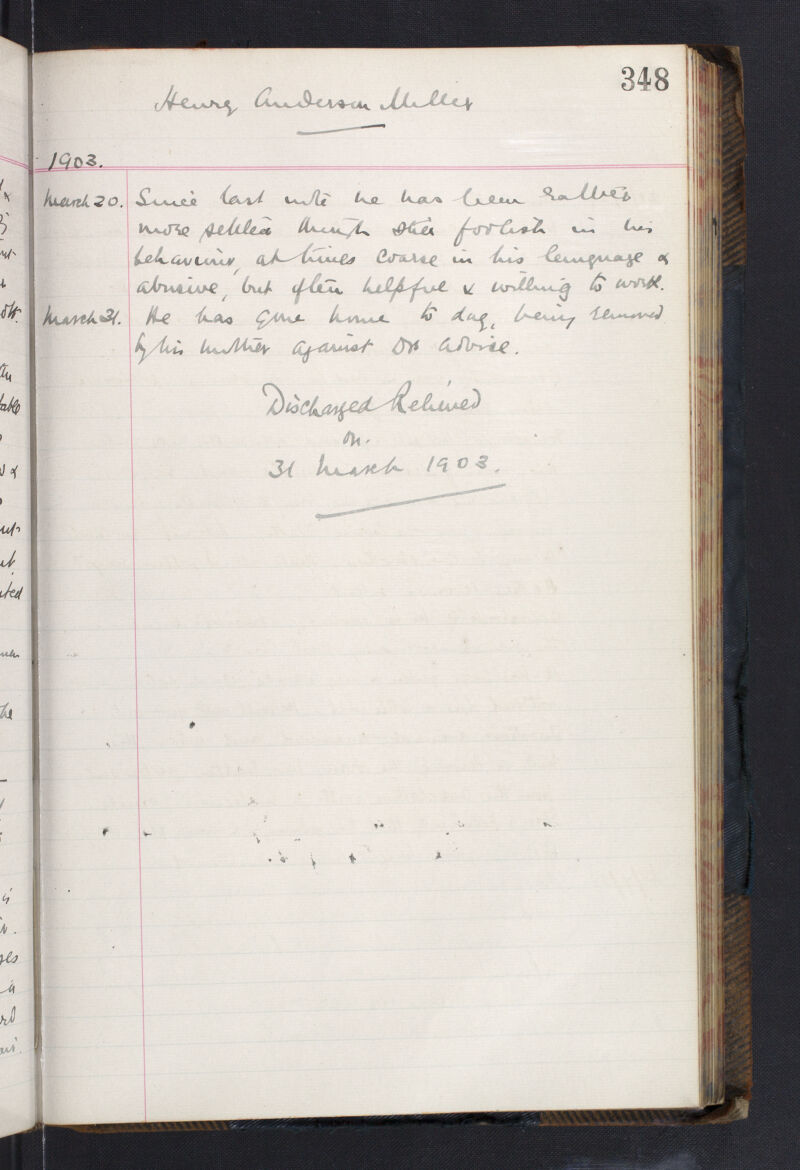 348
Henry Anderson Miller
1903.
March 20. Since last note he has been rather
more settled though still foolish in his
behaviour, at times coarse in his language &
abusive, but often helpful & willing to work.
March 31. He has gone home to day, being removed
by his mother against Drs advise.
Discharged Relieved
on.
31 March 1903.